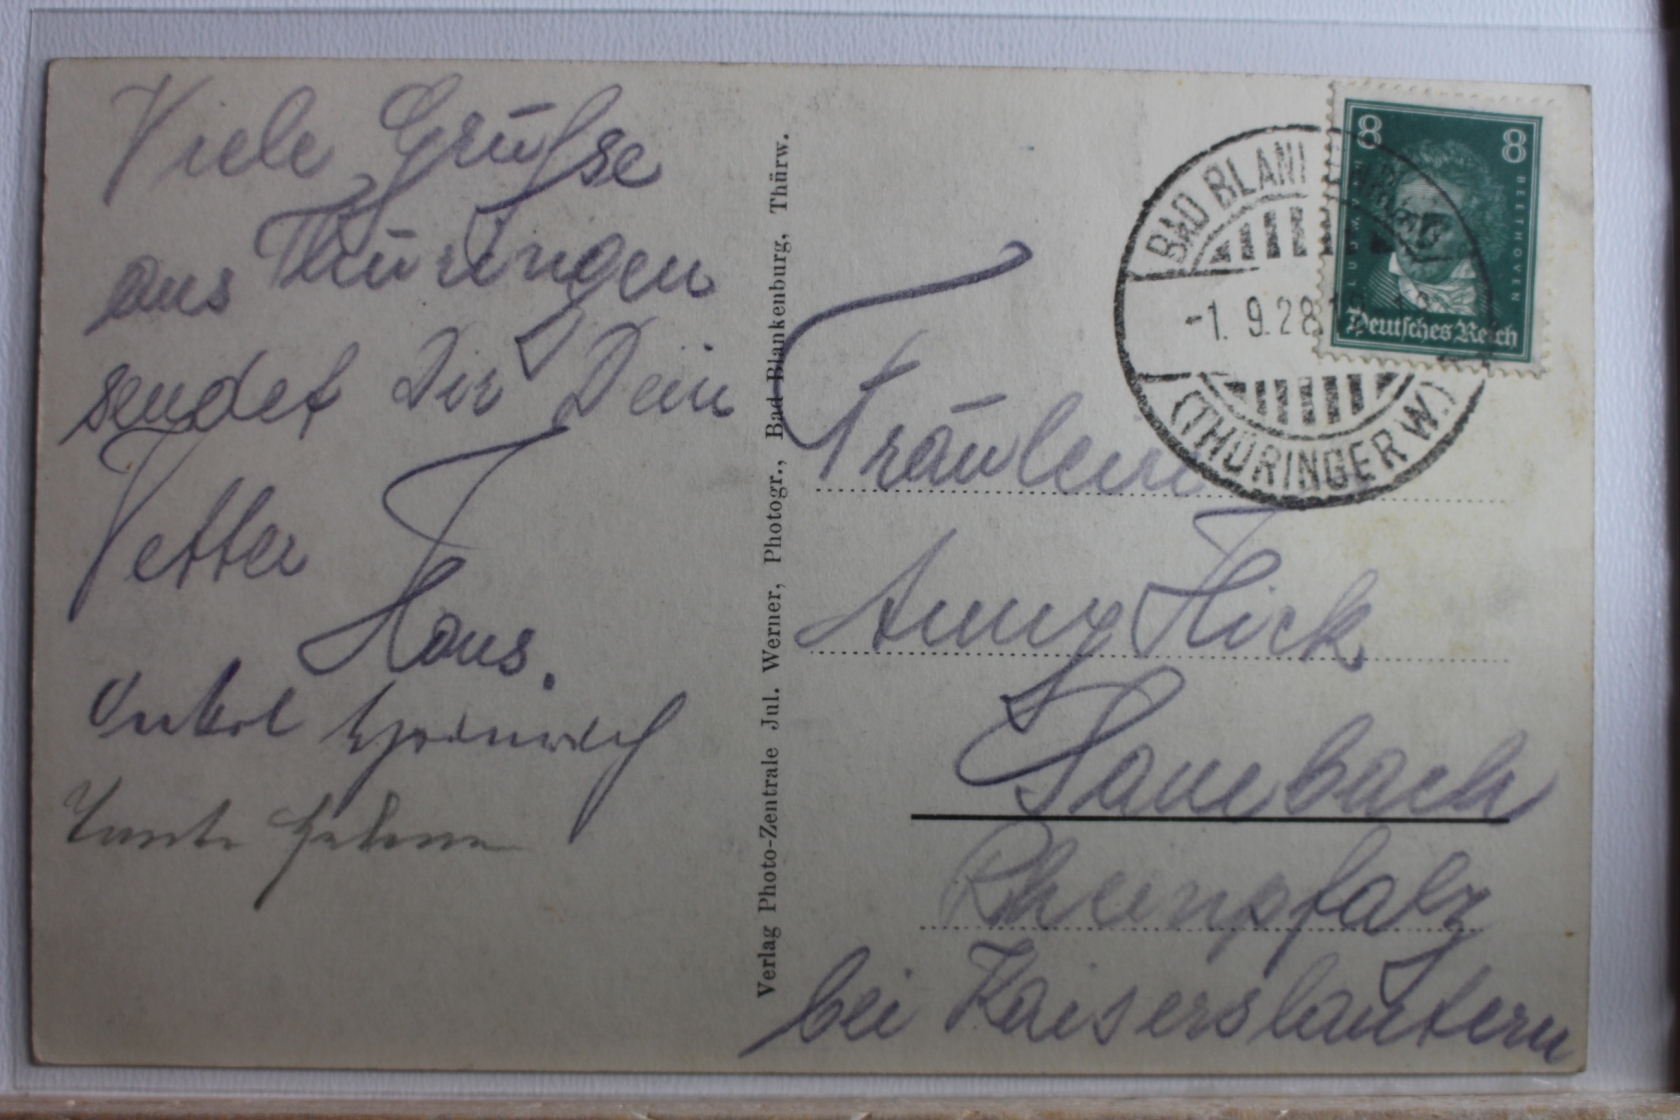 Viele Grüsse
aus Thüringen
sendet Dir Dein
Vetter
Hans.
Onkel Heinrich
Tante Helene
Verlag Photo-Zentrale Jul. Werner, Photogr., Bad Blankenburg, Thürw.
8 8
LUDWIG VAN BEETHOVEN
Deutsches Reich
BAD BLANKENBURG
-1. 9.28
(THÜRINGER W.)
Fräulein
Anny Flick
Rheinpfalz
bei Kaiserslautern